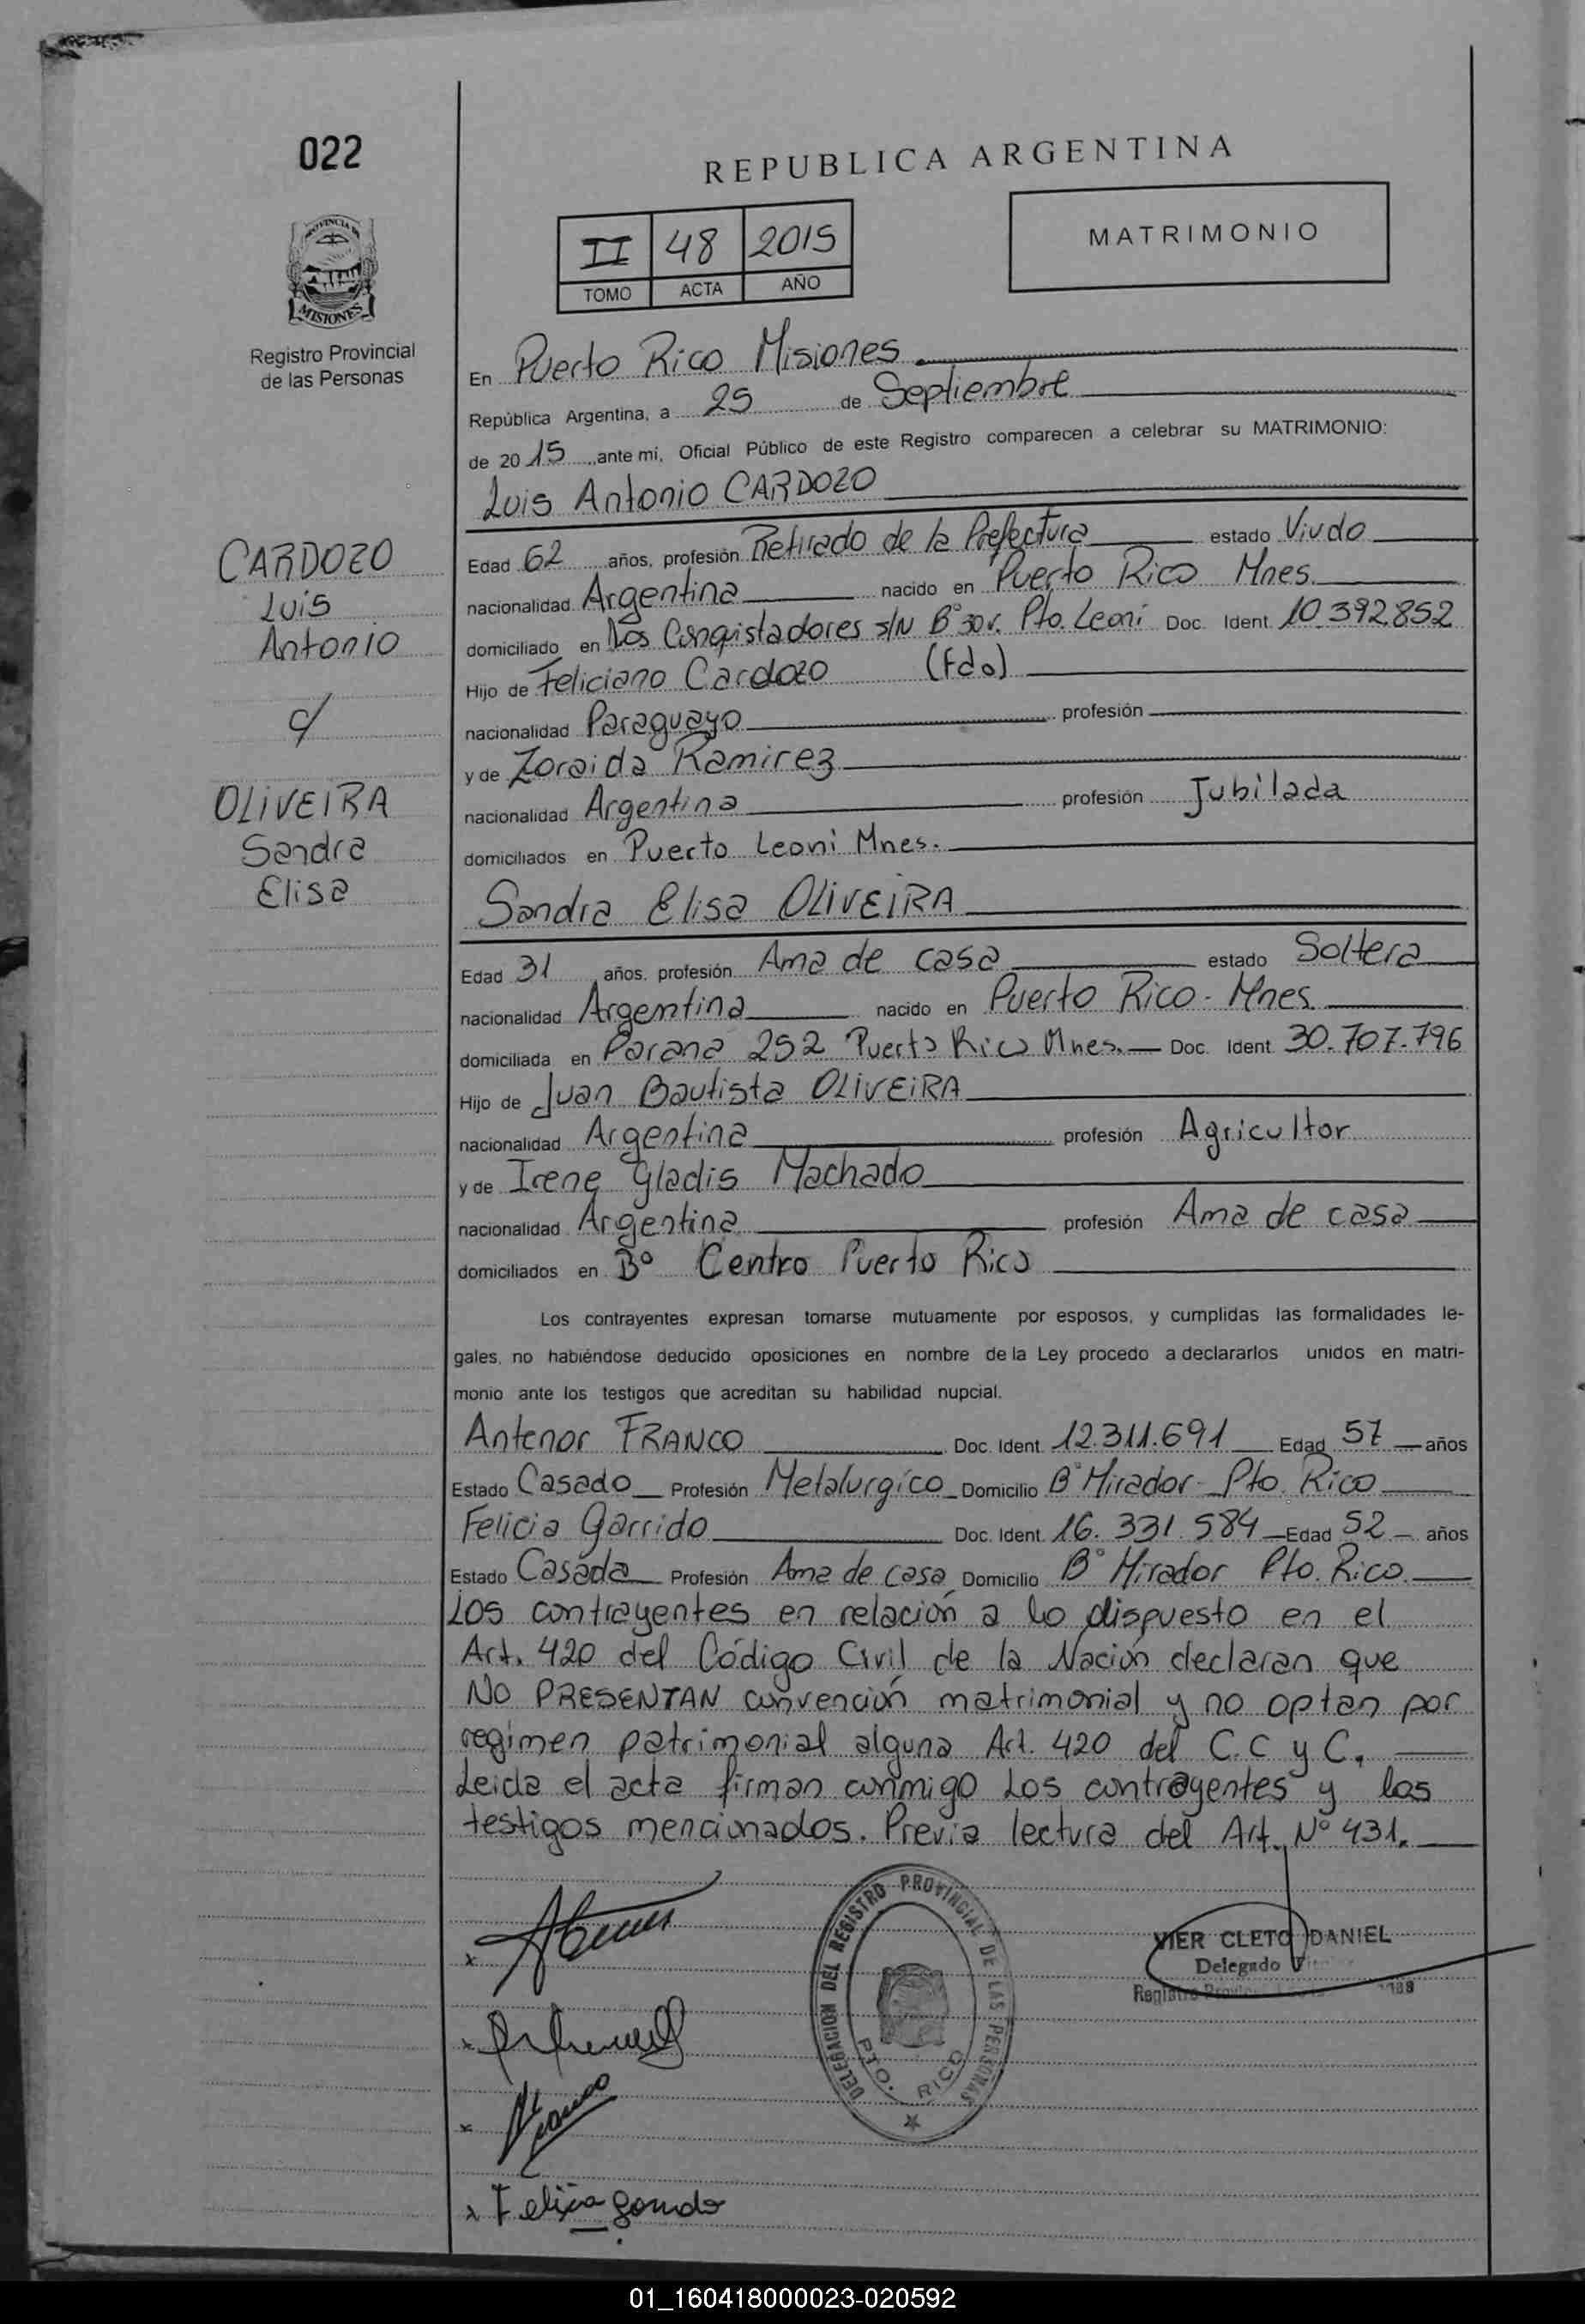 022
REPUBLICA ARGENTINA
PROVINCIA DE
MISIONES
Registro Provincial
de las Personas
II 48 2015
TOMO ACTA AÑO
MATRIMONIO
En Puerto Rico Misiones
República Argentina, a 25 de Septiembre
de 2015, ante mí, Oficial Público de este Registro comparecen a celebrar su MATRIMONIO:
Luis Antonio CARDOZO
CARDOZO
Luis
Antonio
c/
OLIVEIRA
Sandra
Elisa
Edad 62 años, profesión Retirado de la Prefectura estado Viudo
nacionalidad Argentina nacido en Puerto Rico Mnes.
domiciliado en Los Conquistadores s/N B° 30 v. Pto. Leoni Doc. Ident. 10.392.852
Hijo de Feliciano Cardozo (Fdo)
nacionalidad Paraguayo profesión
y de Zoraida Ramirez
nacionalidad Argentina profesión Jubilada
domiciliados en Puerto Leoni Mnes.
Sandra Elisa OLIVEIRA
Edad 31 años, profesión Ama de casa estado Soltera
nacionalidad Argentina nacido en Puerto Rico - Mnes.
domiciliada en Parana 252 Puerto Rico Mnes. Doc. Ident. 30.707.796
Hijo de Juan Bautista OLIVEIRA
nacionalidad Argentina profesión Agricultor
y de Irene Gladis Machado
nacionalidad Argentina profesión Ama de casa
domiciliados en B° Centro Puerto Rico
Los contrayentes expresan tomarse mutuamente por esposos, y cumplidas las formalidades le-
gales, no habiéndose deducido oposiciones en nombre de la Ley procedo a declararlos unidos en matri-
monio ante los testigos que acreditan su habilidad nupcial.
Antenor FRANCO Doc. Ident. 12.311.691 Edad 57 años
Estado Casado Profesión Metalurgíco Domicilio B° Mirador - Pto. Rico
Felicia Garrido Doc. Ident. 16.331.584 Edad 52 años
Estado Casada Profesión Ama de casa Domicilio B° Mirador Pto. Rico.
Los contrayentes en relación a lo dispuesto en el
Art. 420 del Código Civil de la Nación declaran que
NO PRESENTAN convención matrimonial y no optan por
regimen patrimonial alguna Art. 420 del C.C y C.
Leida el acta firman conmigo los contrayentes y los
testigos mencionados. Previa lectura del Art. N° 431.
DELEGACION DEL REGISTRO PROVINCIAL DE LAS PERSONAS
PTO. RICO
VIER CLETO DANIEL
Delegado
Registro
x
x
x
x Felicia Garrido
01_160418000023-020592